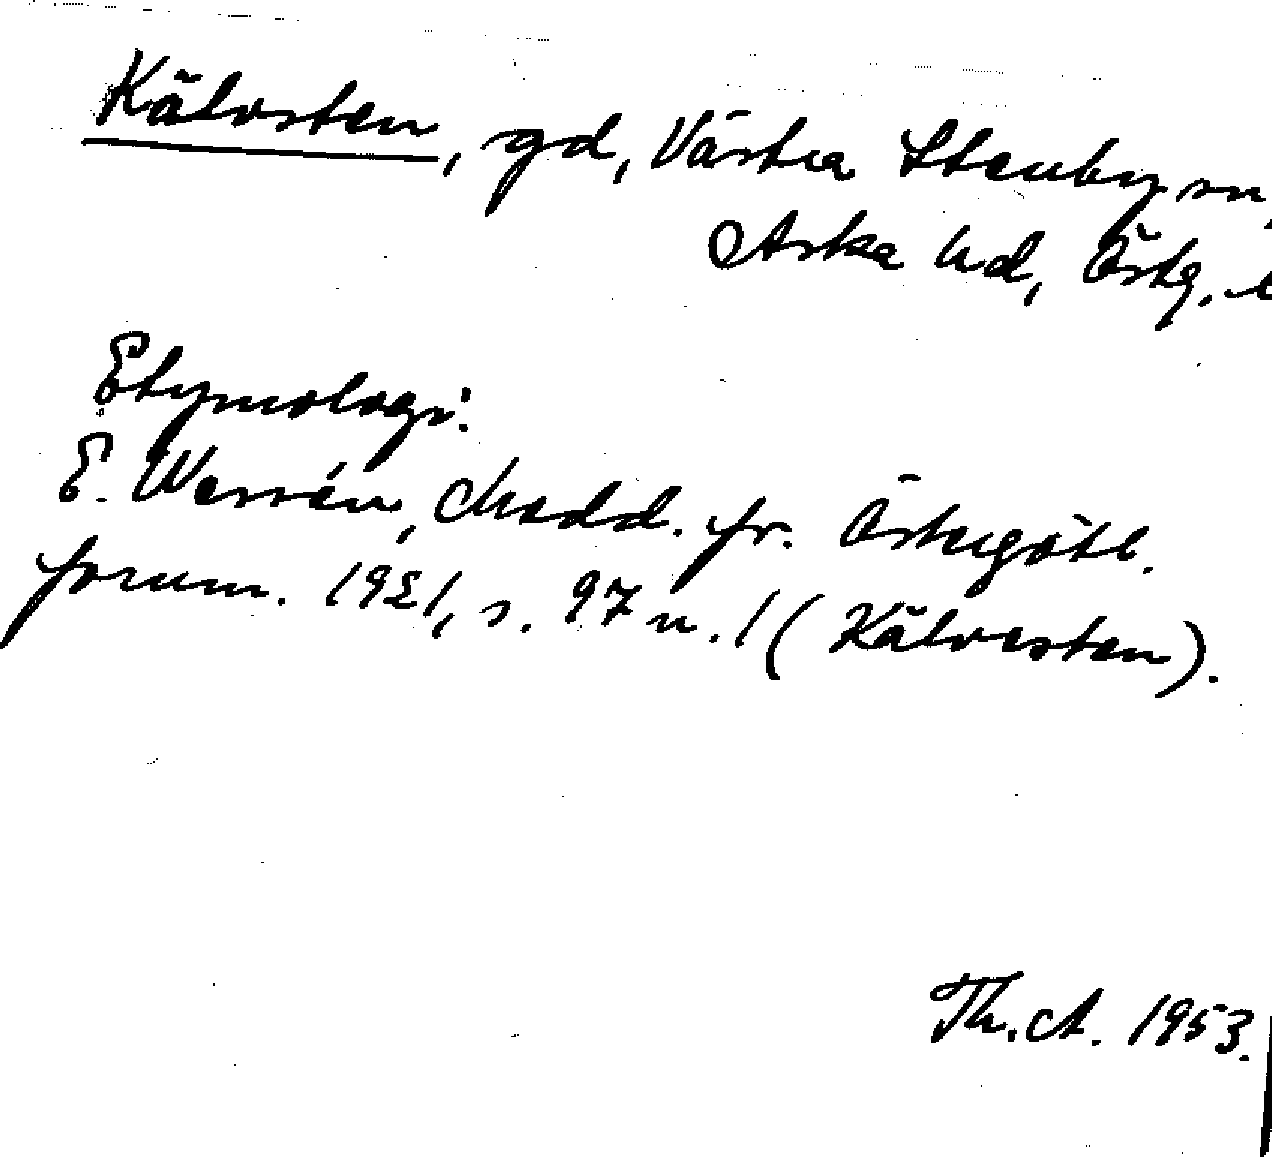 Kälvsten, gd, Västra Stenby sn,
Aska hd, Östg. l
Etymologi:
E. Wessén, Medd. fr. Östergötl.
fornm. 1921, s. 97 n. 1 (Kälvesten).
Th. A. 1953.